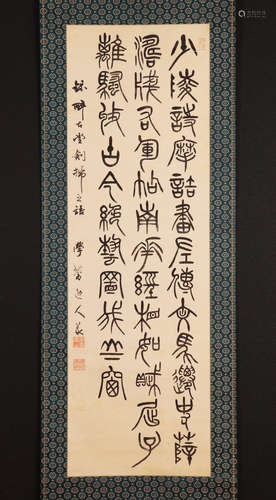 少陵詩摩詰畫左傳文馬遷史薛
濤牋右軍帖南華經相如賦屈子
離騷收古今絕藝置我山窗
錄醉古堂劍掃之語 學